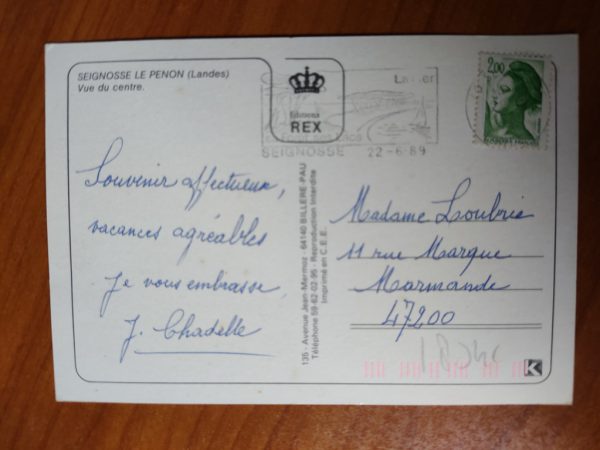 SEIGNOSSE LE PENON (Landes)
Vue du centre.
Editions
REX
La mer
SEIGNOSSE 22-6 89
2,00
Souvenir affectueux,
vacances agréables
Je vous embrasse,
J. Chadelle
135 - Avenue Jean-Mermoz - 64140 BILLERE-PAU
Téléphone 59-62-02-95 - Reproduction Interdite
Imprimé en C.E.E.
Madame Loubrie
11 rue Marque
Marmande
47200
K